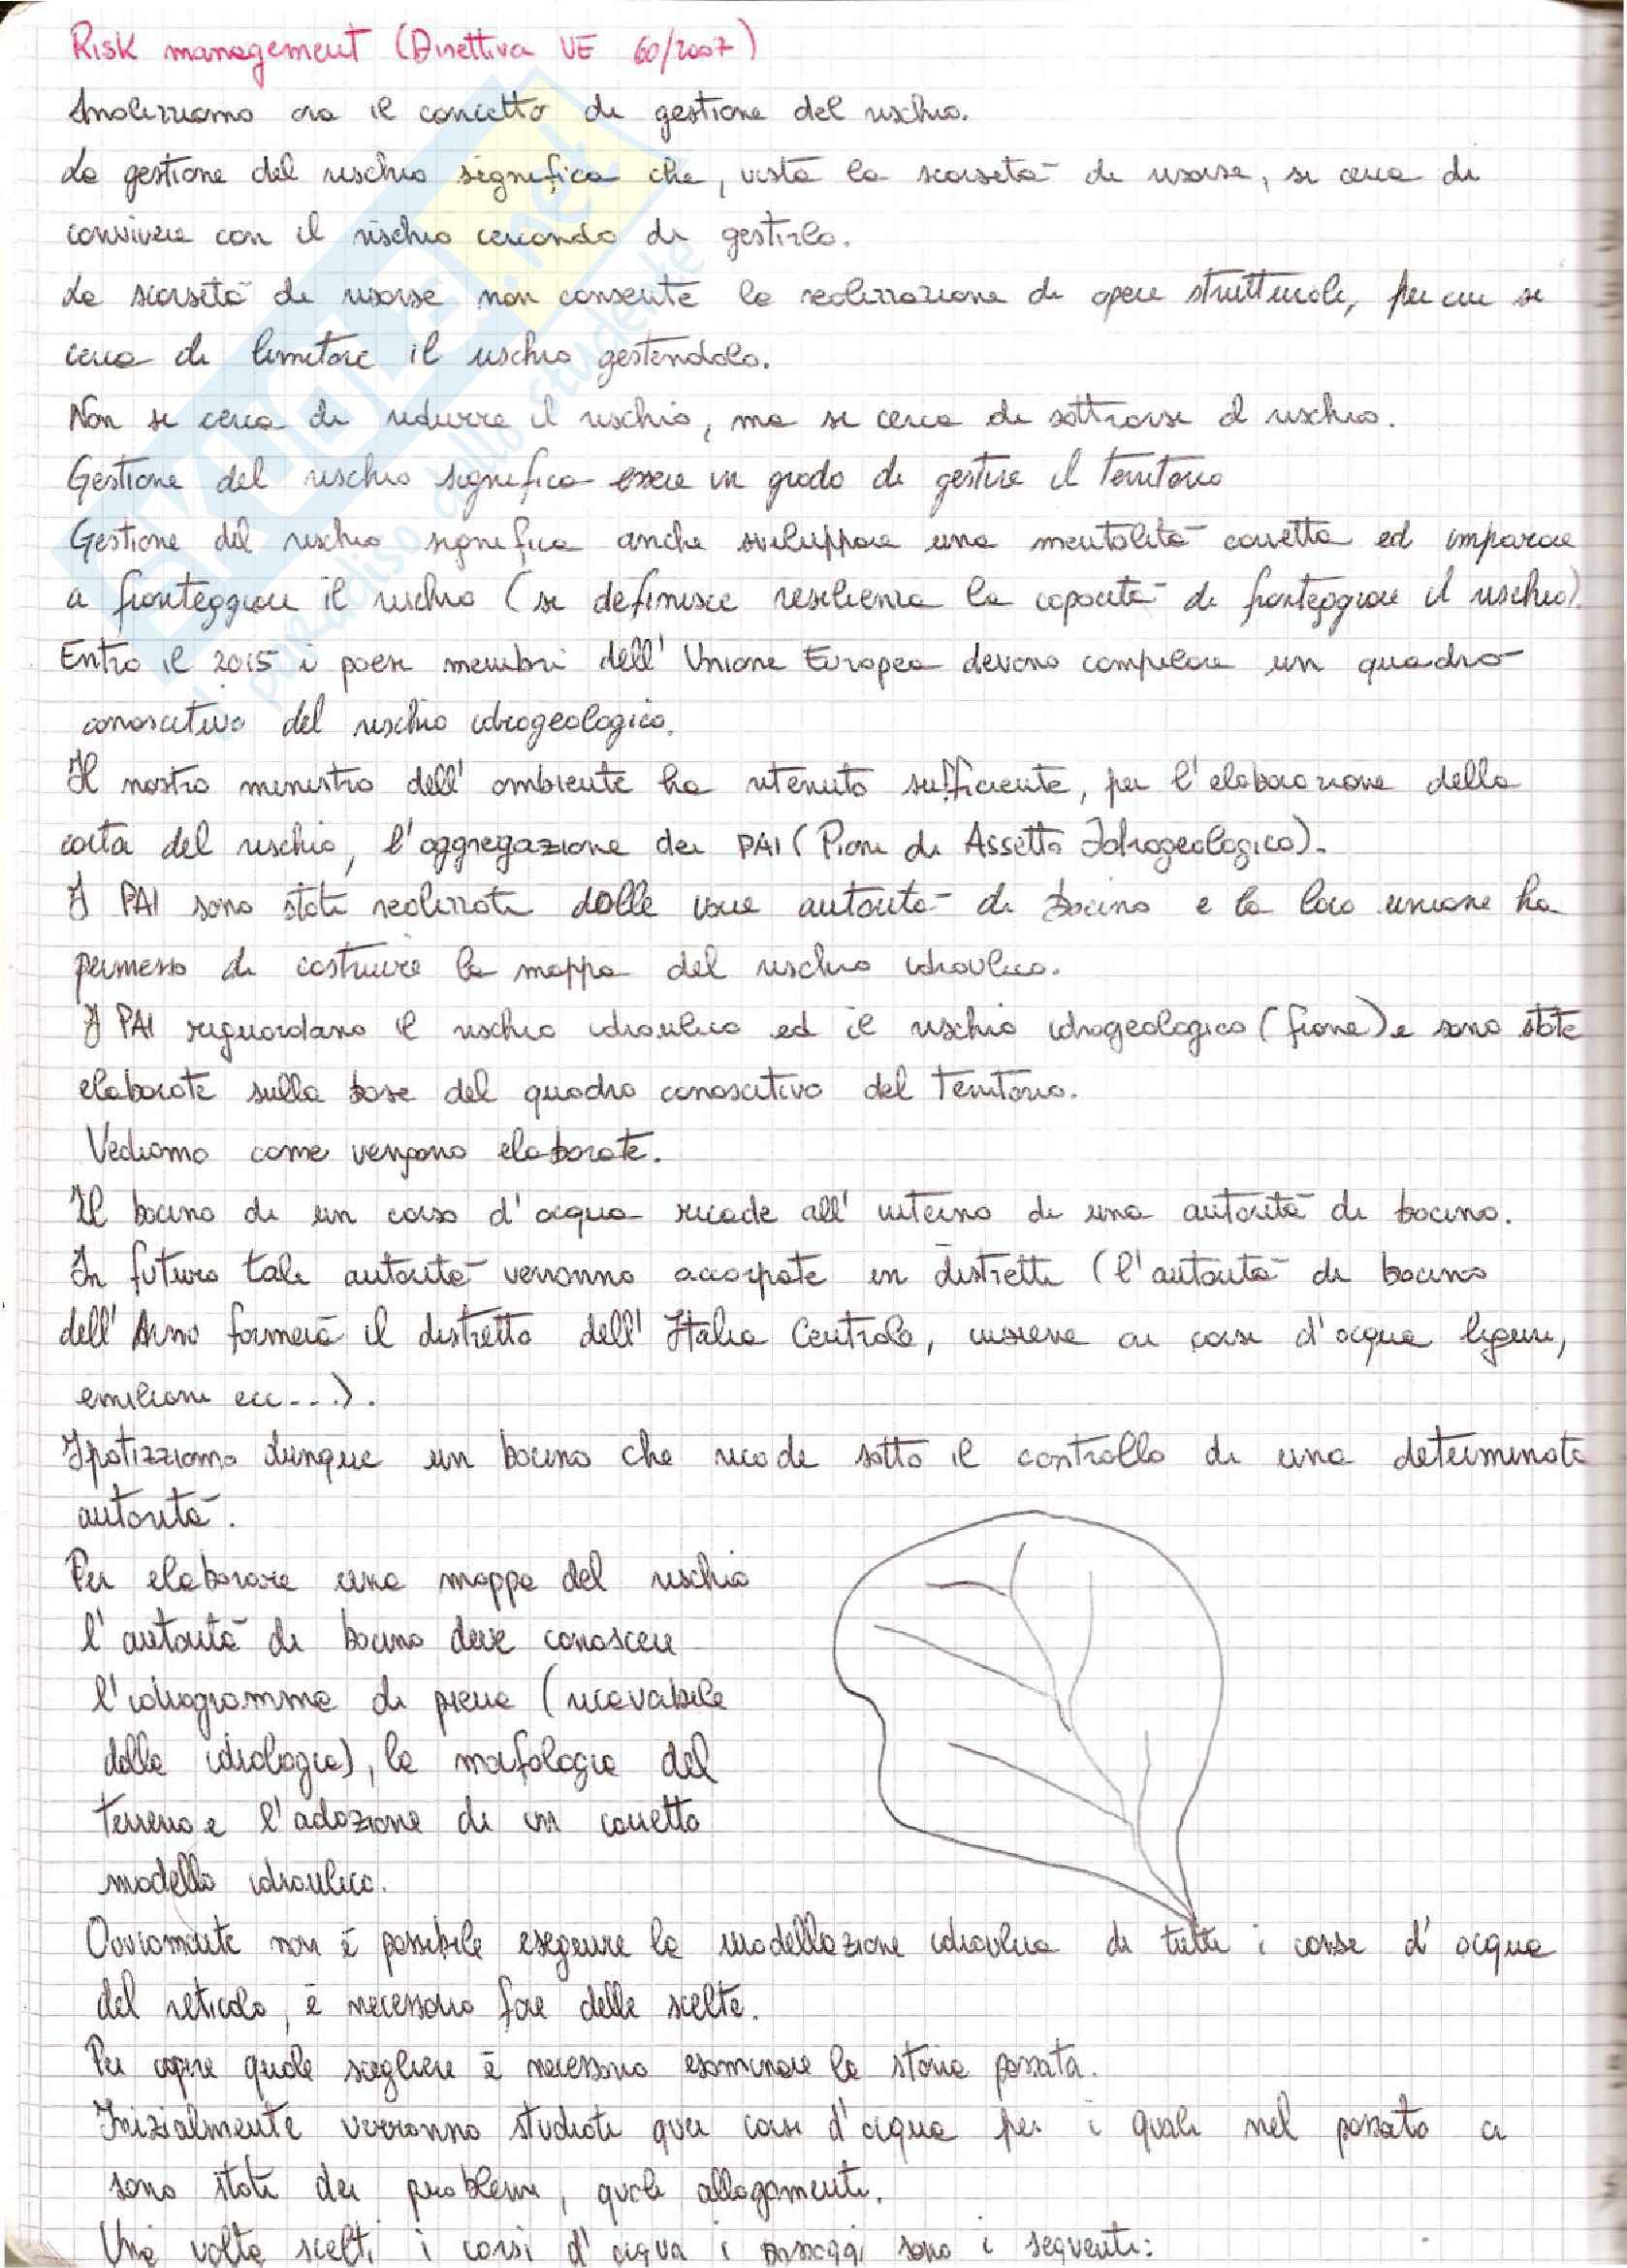 Risk management (Direttiva UE 60/2007)
Analizziamo ora il concetto di gestione del rischio.
La gestione del rischio significa che, vista la scarsità di risorse, si cerca di
convivere con il rischio cercando di gestirlo.
La scarsità di risorse non consente la realizzazione di opere strutturali, per cui si
cerca di limitare il rischio gestendolo.
Non si cerca di ridurre il rischio, ma si cerca di sottrarsi al rischio.
Gestione del rischio significa essere in grado di gestire il territorio
Gestione del rischio significa anche sviluppare una mentalità corretta ed imparare
a fronteggiare il rischio (si definisce resilienza la capacità di fronteggiare il rischio).
Entro il 2015 i paesi membri dell' Unione Europea devono compilare un quadro
conoscitivo del rischio idrogeologico.
Il nostro ministro dell' ambiente ha ritenuto sufficiente, per l'elaborazione della
carta del rischio, l'aggregazione dei PAI (Piani di Assetto Idrogeologico).
I PAI sono stati realizzati dalle varie autorità di bacino e la loro unione ha
permesso di costruire la mappa del rischio idraulico.
I PAI riguardano il rischio idraulico ed il rischio idrogeologico (frane) e sono state
elaborate sulla base del quadro conoscitivo del territorio.
Vediamo come vengono elaborate.
Il bacino di un corso d'acqua ricade all' interno di una autorità di bacino.
In futuro tali autorità verranno accorpate in distretti (l'autorità di bacino
dell' Arno formerà il distretto dell' Italia Centrale, insieme ai corsi d'acqua liguri,
emiliani ecc....).
Ipotizziamo dunque un bacino che ricade sotto il controllo di una determinata
autorità.
Per elaborare una mappa del rischio
l'autorità di bacino deve conoscere
l'idrogramma di piena (ricavabile
dalla idrologia), la morfologia del
terreno e l'adozione di un corretto
modello idraulico.
Ovviamente non è possibile eseguire la modellazione idraulica di tutti i corsi d' acqua
del reticolo, è necessario fare delle scelte.
Per capire quale scegliere è necessario esaminare la storia passata.
Inizialmente verranno studiati quei corsi d'acqua per i quali nel passato ci
sono stati dei problemi, quali allagamenti.
Una volta scelti i corsi d' acqua i passaggi sono i seguenti:
SKUOLA.net
il paradiso dello studente